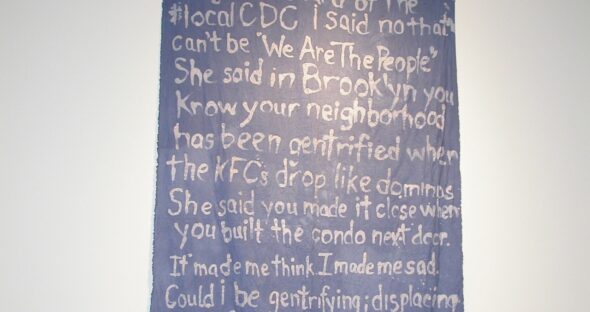 of The
local CDC i said no that
can't be "We Are The People"
She said in Brooklyn you
Know your neighborhood
has been gentrified when
the KFCs drop like dominos
She said you made it close when
you built the condo next door.
It made me think. I made me sad.
Could i be gentrifying; displacing